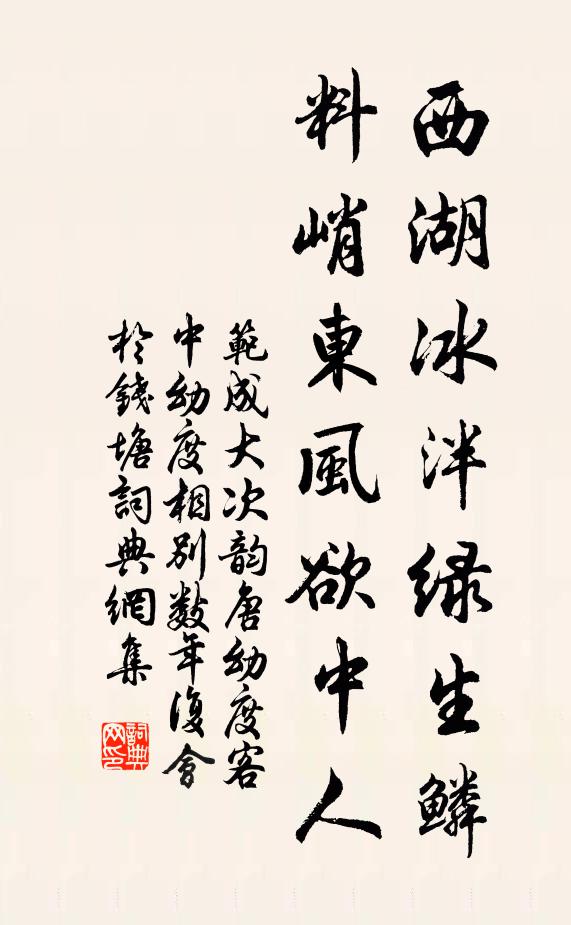 西湖冰泮绿生鳞
料峭東風欲中人
範成大次韵唐幼度客
中幼度相别数年復會
於錢塘詞典網集
詞典網印